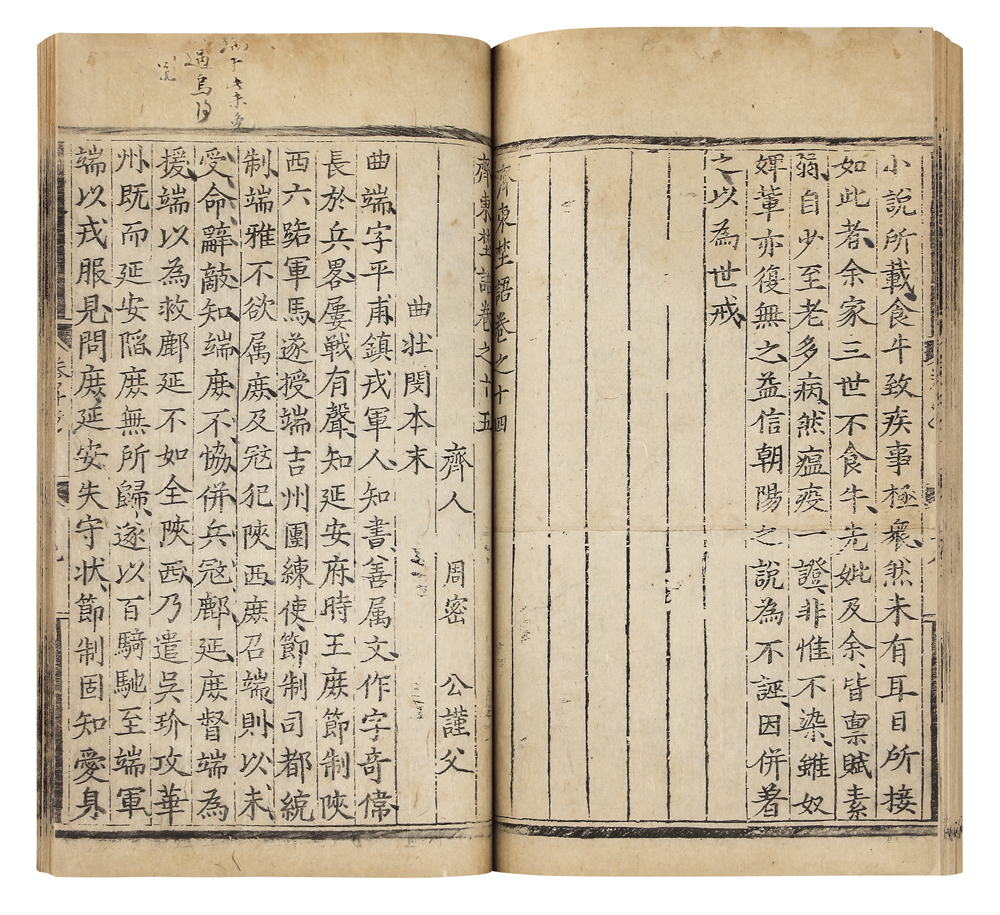 小說所載食牛致疾事極衆然未有耳目所接
如此者余家三世不食牛先妣及余皆禀賦素
弱自少至老多病然瘟疫一證非惟不染雖奴
婢軰亦復無之益信朝陽之說為不誣因併着
之以為世戒
齊東埜語卷之十四
齊東埜語卷之十五
齊人 周密 公謹父
曲壮閔本末
曲端字平甫鎮戎軍人知書善属文作字奇偉
長於兵畧屢戦有聲知延安府時王庶節制陜
西六路軍馬遂授端吉州團練使節制司都統
制端雅不欲属庶及冦犯陜西庶召端則以未
受命辭敵知端庶不協併兵冦鄜延庶督端為
援端以為救鄜延不如全陜西乃遣吳玠攻華
州既而延安陷庶無所歸遂以百騎馳至端軍
端以戎服見問庶延安失守状節制固知愛身